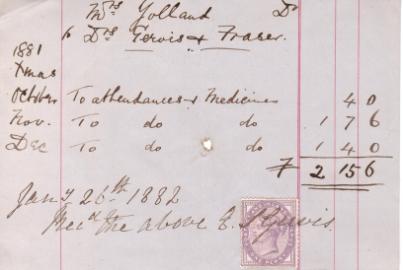 Mrs Yolland Dr
to Drs Jervis & Fraser.
1881
Xmas
October To attendances & Medicines 4 0
Nov. To do do 1 7 6
Dec To do do 1 4 0
£ 2 15 6
Jany 26th 1882
Recd the above E. Jervis